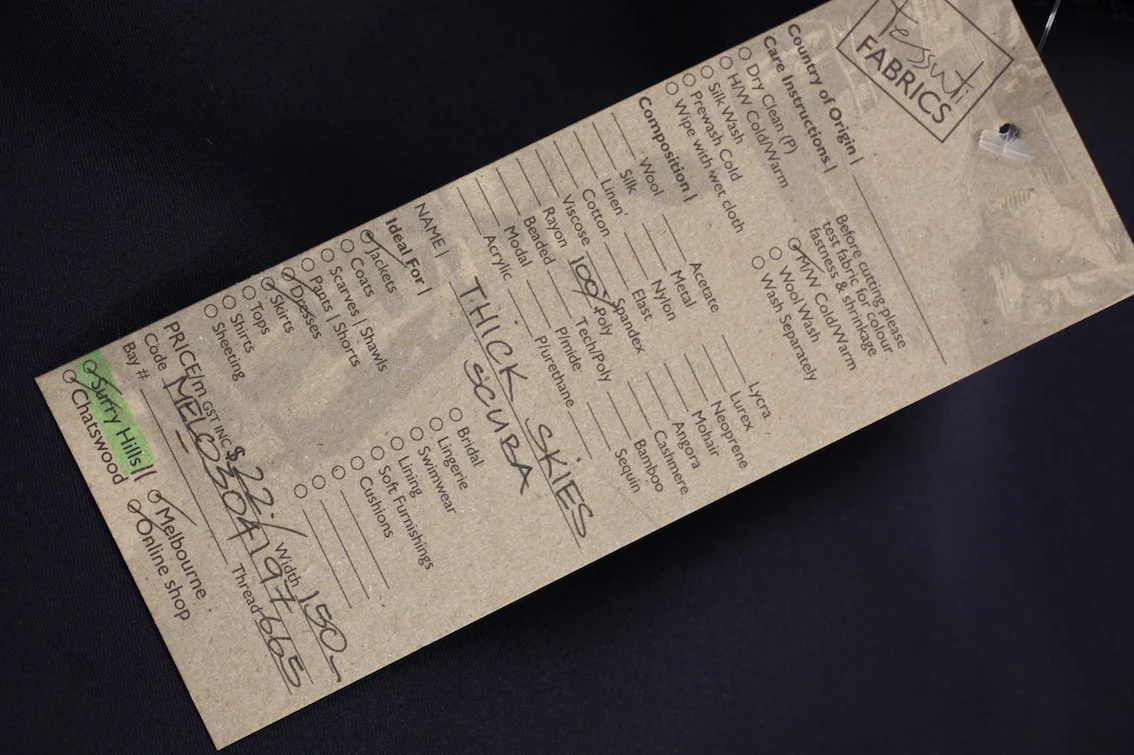 Tessuti
FABRICS
Country of Origin |
Care Instructions |
Before cutting please
test fabric for colour
fastness & shrinkage
Dry Clean (P)
H/W Cold/Warm
Silk Wash
Prewash Cold
Wipe with wet cloth
M/W Cold/Warm
Wool Wash
Wash Separately
Composition |
Wool
Silk
Linen
Cotton
Viscose
Rayon
Beaded
Modal
Acrylic
Acetate
Metal
Nylon
Elast
Spandex
100% Poly
Tech/Poly
P/mide
P/urethane
Lycra
Lurex
Neoprene
Mohair
Angora
Cashmere
Bamboo
Sequin
NAME | THICK SKIES
SCUBA
Ideal For |
Jackets
Coats
Scarves | Shawls
Pants | Shorts
Dresses
Skirts
Tops
Shirts
Sheeting
Bridal
Lingerie
Swimwear
Lining
Soft Furnishings
Cushions
PRICE/m GST INC $22./ Width 150~
Code MELC0304197 Thread 665
Bay #
Surry Hills
Chatswood
Melbourne
Online shop